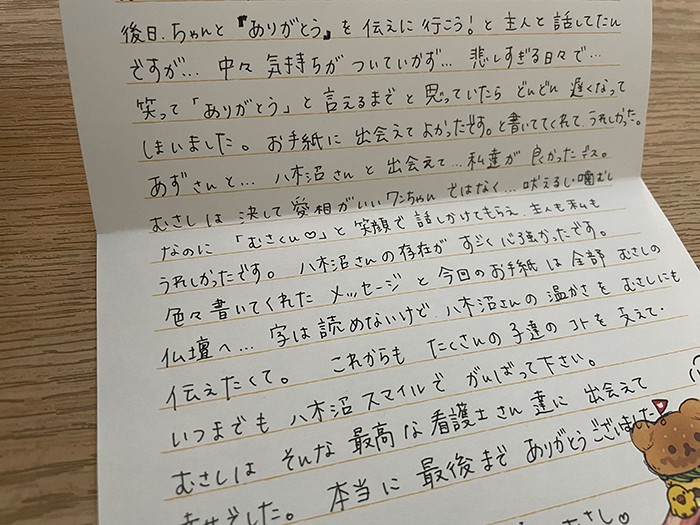 後日、ちゃんと『ありがとう』を伝えに行こう！と主人と話してたん
ですが… 中々気持ちがついていかず… 悲しすぎる日々で…
笑って「ありがとう」と言えるまでと思っていたらどんどん遅くなって
しまいました。お手紙に出会えてよかったです。と書いててくれて、うれしかった。
あずさんと… 八木沼さんと出会えて… 私達が良かったデス。
むさしは決して愛相がいいワンちゃんではなく… 吠えるし噛むし
なのに「むさくん♡」と笑顔で話しかけてもらえ、主人も私も
うれしかったです。八木沼さんの存在がすごく心強かったです。
色々書いてくれたメッセージと今回のお手紙は全部むさしの
仏壇へ… 字は読めないけど、八木沼さんの温かさをむさしにも
伝えたくて。これからもたくさんの子達のコトを支えて・
いつまでも八木沼スマイルでがんばって下さい。
むさしはそんな最高な看護士さん達に出会えて
幸せでした。本当に最後まで ありがとうございました。
むさし♡